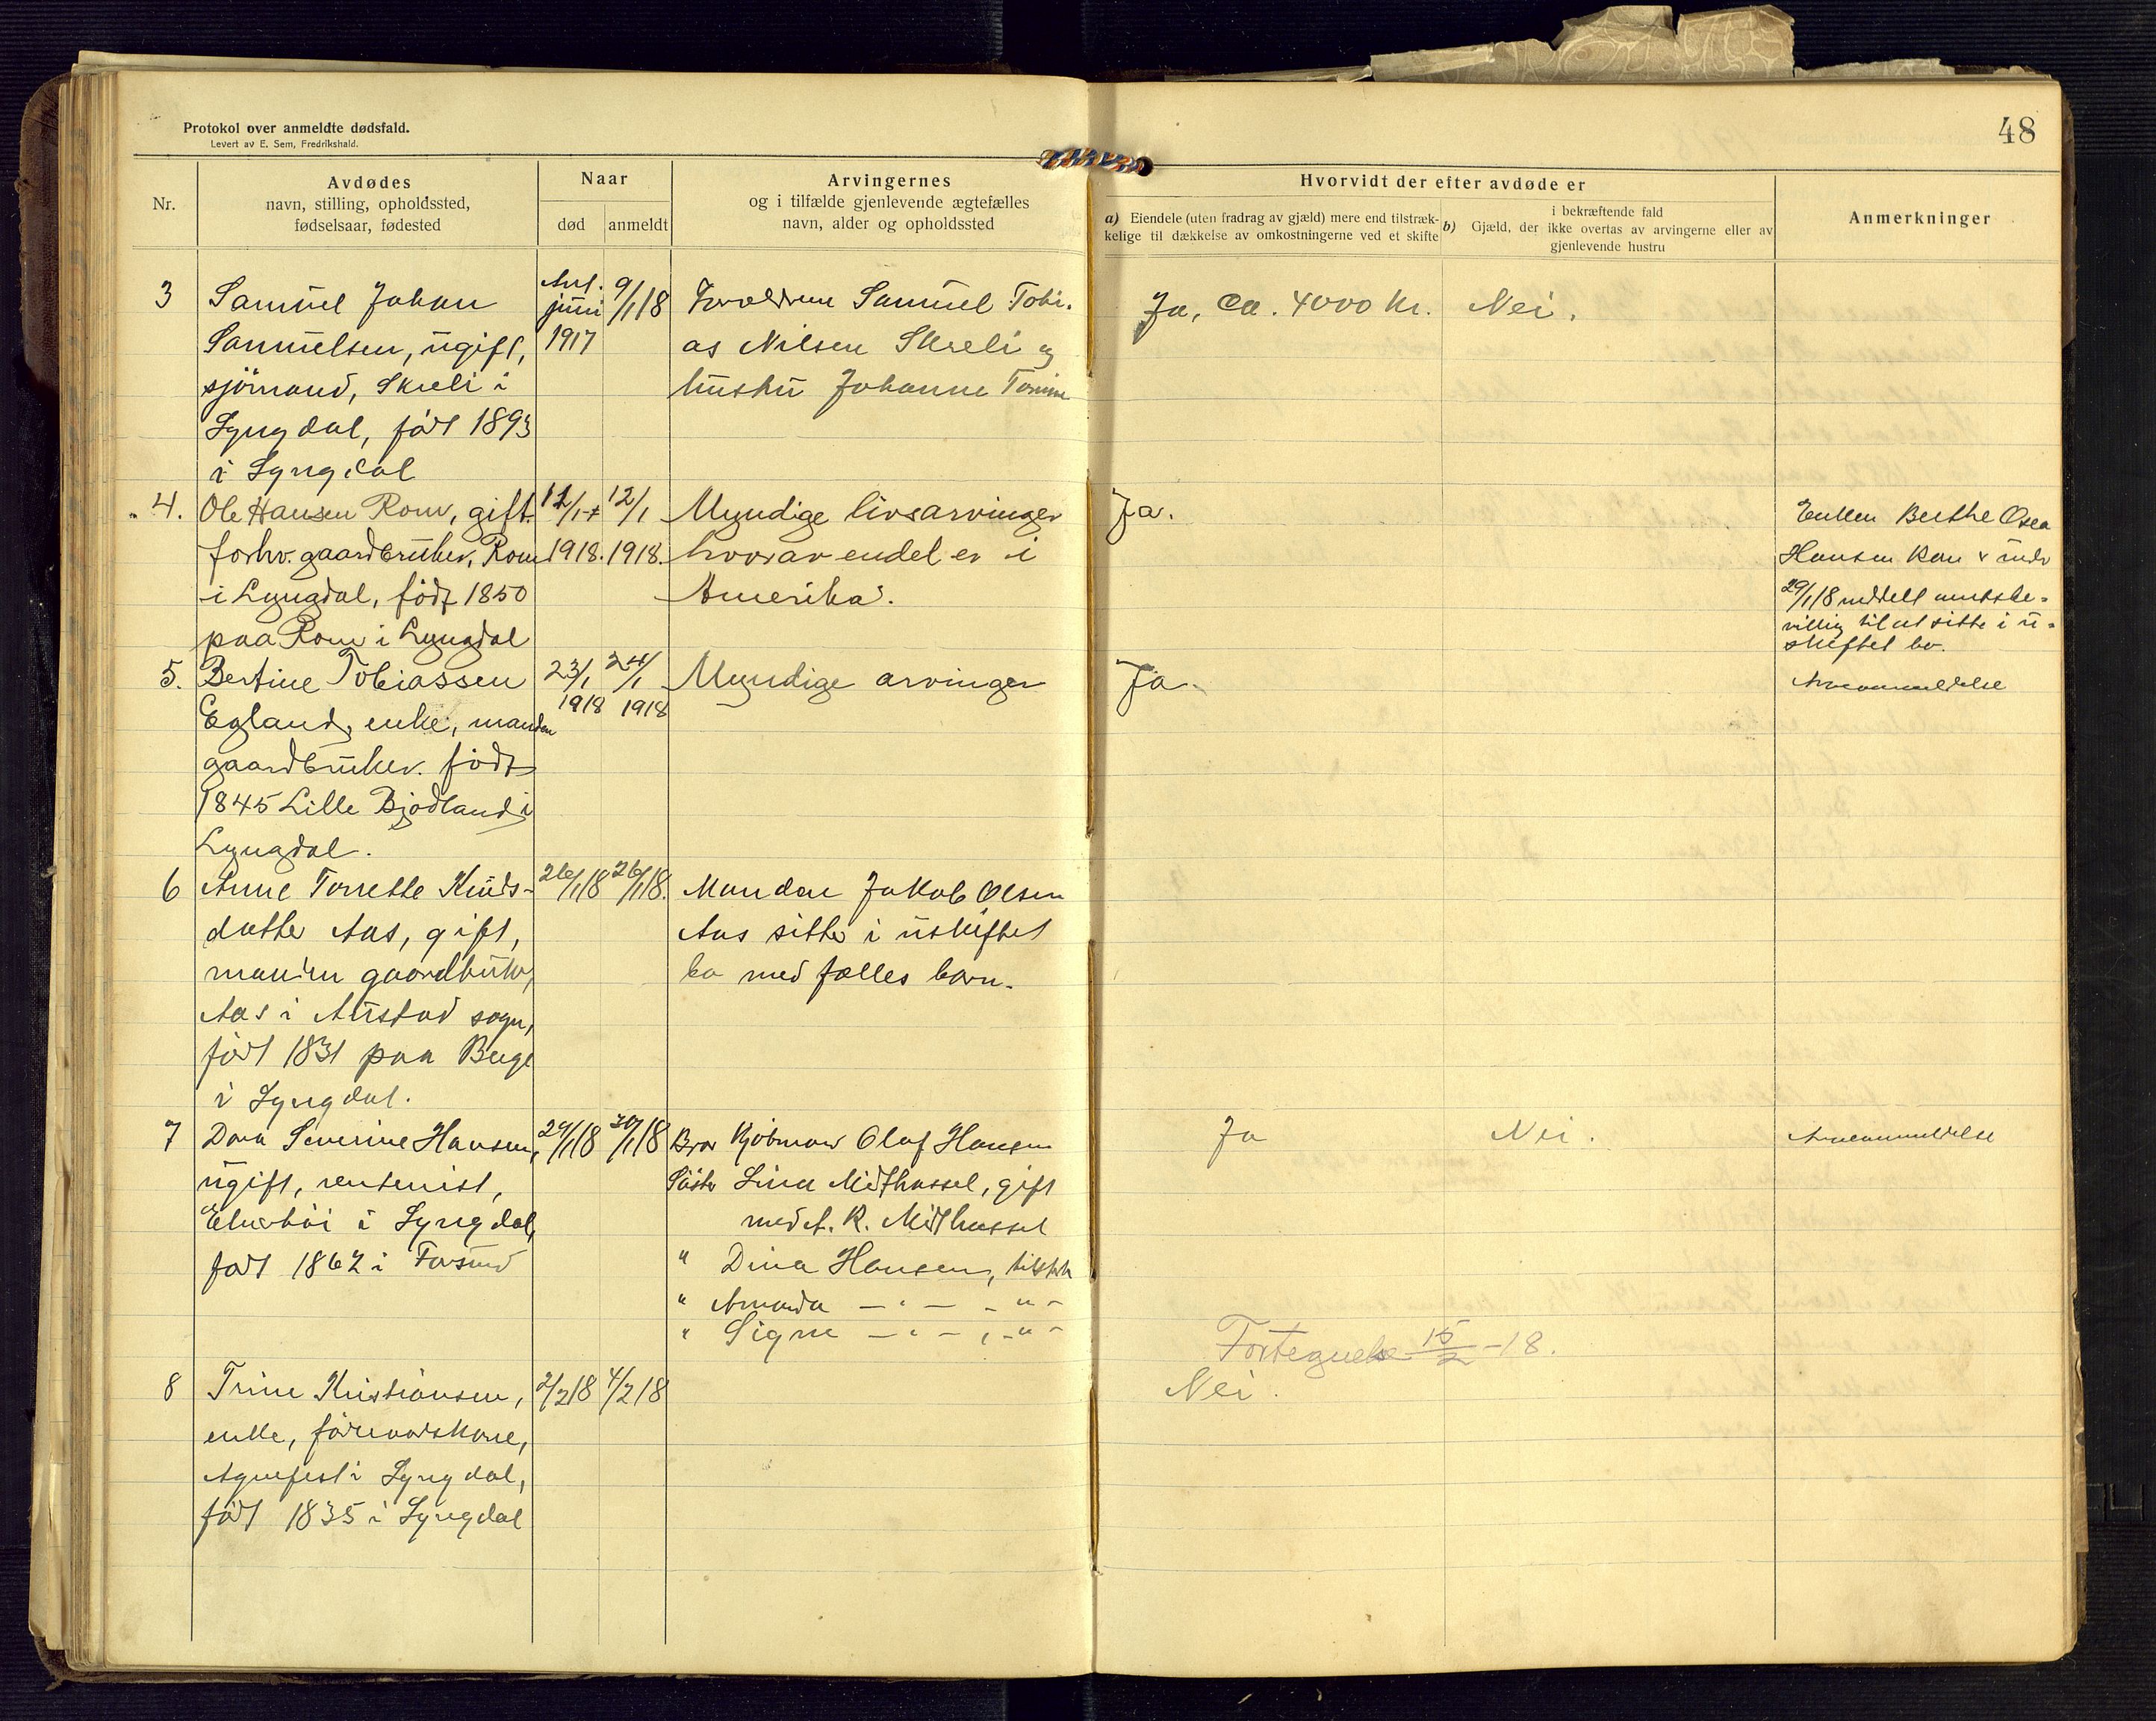 Protokol over anmeldte dødsfald.
Levert av E. Sem, Fredrikshald.
48
Nr.
Avdødes
navn, stilling, opholdssted,
fødselsaar, fødested
Naar
død
anmeldt
Arvingernes
og i tilfælde gjenlevende ægtefælles
navn, alder og opholdssted
Hvorvidt der efter avdøde er
a) Eiendele (uten fradrag av gjæld) mere end tilstræk-
kelige til dækkelse av omkostningerne ved et skifte
b) Gjæld, der i bekræftende fald
ikke overtas av arvingerne eller av
gjenlevende hustru
Anmerkninger
3
Samuel Johan
Samuelsen, ugift,
sjömand, Skreli i
Lyngdal, født 1893
i Lyngdal
Ant.
juni
1917
9/1 18
Forældrene Samuel Tobi-
as Nilsen Skreli og
hustru Johanne Tomine
Ja, ca. 4000 kr.
Nei.
4.
Ole Hansen Rom, gift
forhv. gaardbruker, Rom
i Lyngdal, født 1850
paa Rom i Lyngdal
12/1
1918.
12/1
1918.
Myndige livsarvinger
hvorav endel er i
Amerika.
Ja.
Enken Berthe Osea
Hansen Rom er under
29/1 18 meddelt amtsbe-
villing til at sitte i u-
skiftet bo.
5.
Bertine Tobiassen
Egland, enke, manden
gaardbruker. født
1845 Lille Bjødland i
Lyngdal.
23/1
1918
24/1
1918
Myndige arvinger
Ja.
Arveanmeldelse
6
Anne Torrette Knuds-
datter Aas, gift,
manden gaardbruker,
Aas i Austad sogn,
født 1831 paa Berge
i Lyngdal.
26/1 18
26/1 18.
Manden Jakob Olsen
Aas sitter i uskiftet
bo med fælles barn.
7
Dora Severine Hansen,
ugift, rentenist,
i Lyngdal,
født 1862 i Farsund
29/1 18
30/1 18
Bror Kjøbmand Olaf Hansen
Søster Lina Midthassel, gift
med A. K. Midthassel
" Dina Hansen,
" Amanda — " — - " -
" Signe — " — , - " -
Ja
Nei.
Arveanmeldelse
Fortegnelse 15/2 - 18.
8
Trine Kristiansen,
enke, föderaadskone,
Agnefest i Lyngdal,
født 1835 i Lyngdal
2/2 18
4/2 18
Nei.